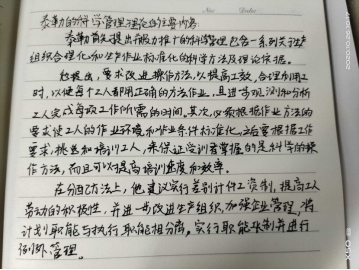 泰勒的科学管理理论的主要内容:
泰勒首先提出并极力推广的科学管理包含一系列关于生产
组织合理化和生产作业标准化的科学方法及理论依据。
他提出,要求改进操作方法,以提高工效,合理利用工
时,以使每个工人都用正确的方法作业,且进步观测和分析
工人完成每项工作所需的时间。其次,必须根据作业方法的
要求使工人的作业环境和作业条件标准化,还应根据工作
要求,挑选和培训工人,来保证受训者掌握的是科学的操
作方法,而且可以提高培训速度和效率。
在分配方法上,他建议实行差别计件工资制,提高工人
劳动的积极性,并进一步改进生产组织,加强企业管理,将
计划职能与执行职能相分离,实行职能长制并进行
例外管理。
2020.10.25